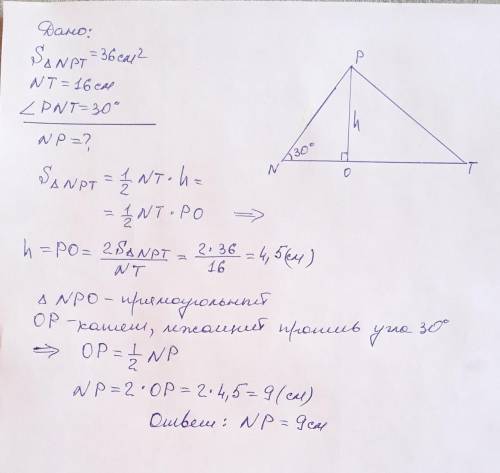 Дано:
S△NPT = 36 см²
NT = 16 см
∠PNT = 30°
NP = ?
S△NPT = 1/2 NT · h =
= 1/2 NT · PO ⟹
h = PO = 2S△NPT/NT = 2·36/16 = 4,5 (см)
△ NPO – прямоугольный
OP – катет, лежащий против угла 30°
⟹ OP = 1/2 NP
NP = 2 · OP = 2 · 4,5 = 9 (см)
Ответ: NP = 9 см
P
h
30°
N
O
T